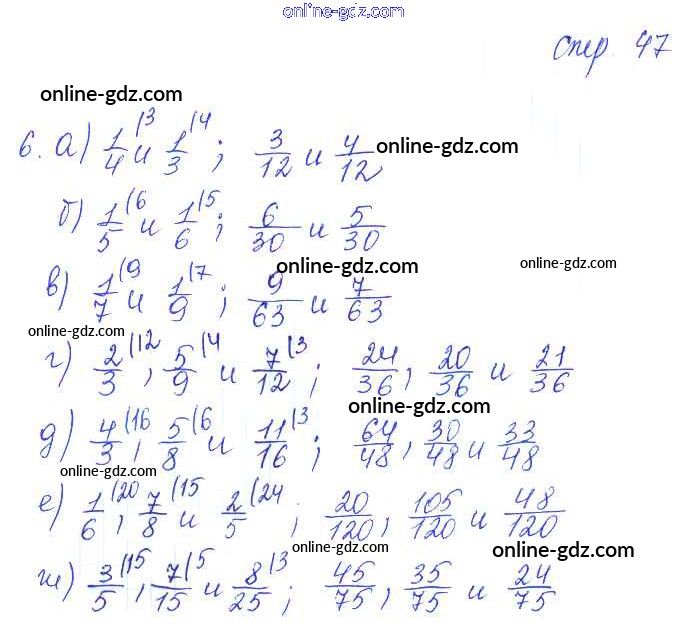 online-gdz.com
стр. 47
online-gdz.com
6. а) 1/4 (3 и 1/3 (4 ; 3/12 и 4/12
online-gdz.com
б) 1/5 (6 и 1/6 (5 ; 6/30 и 5/30
online-gdz.com online-gdz.com
в) 1/7 (9 и 1/9 (7 ; 9/63 и 7/63
online-gdz.com
г) 2/3 (12 , 5/9 (4 и 7/12 (3 ; 24/36 , 20/36 и 21/36
online-gdz.com
д) 4/3 (16 , 5/8 (6 и 11/16 (3 ; 64/48 , 30/48 и 33/48
online-gdz.com
е) 1/6 (20 , 7/8 (15 и 2/5 (24 ; 20/120 , 105/120 и 48/120
online-gdz.com online-gdz.com
ж) 3/5 (15 , 7/15 (5 и 8/25 (3 ; 45/75 , 35/75 и 24/75
online-gdz.com